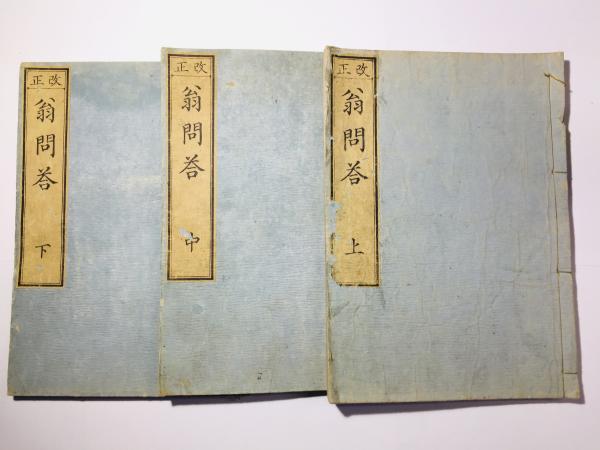 改正
翁問答
上
改正
翁問答
中
改正
翁問答
下